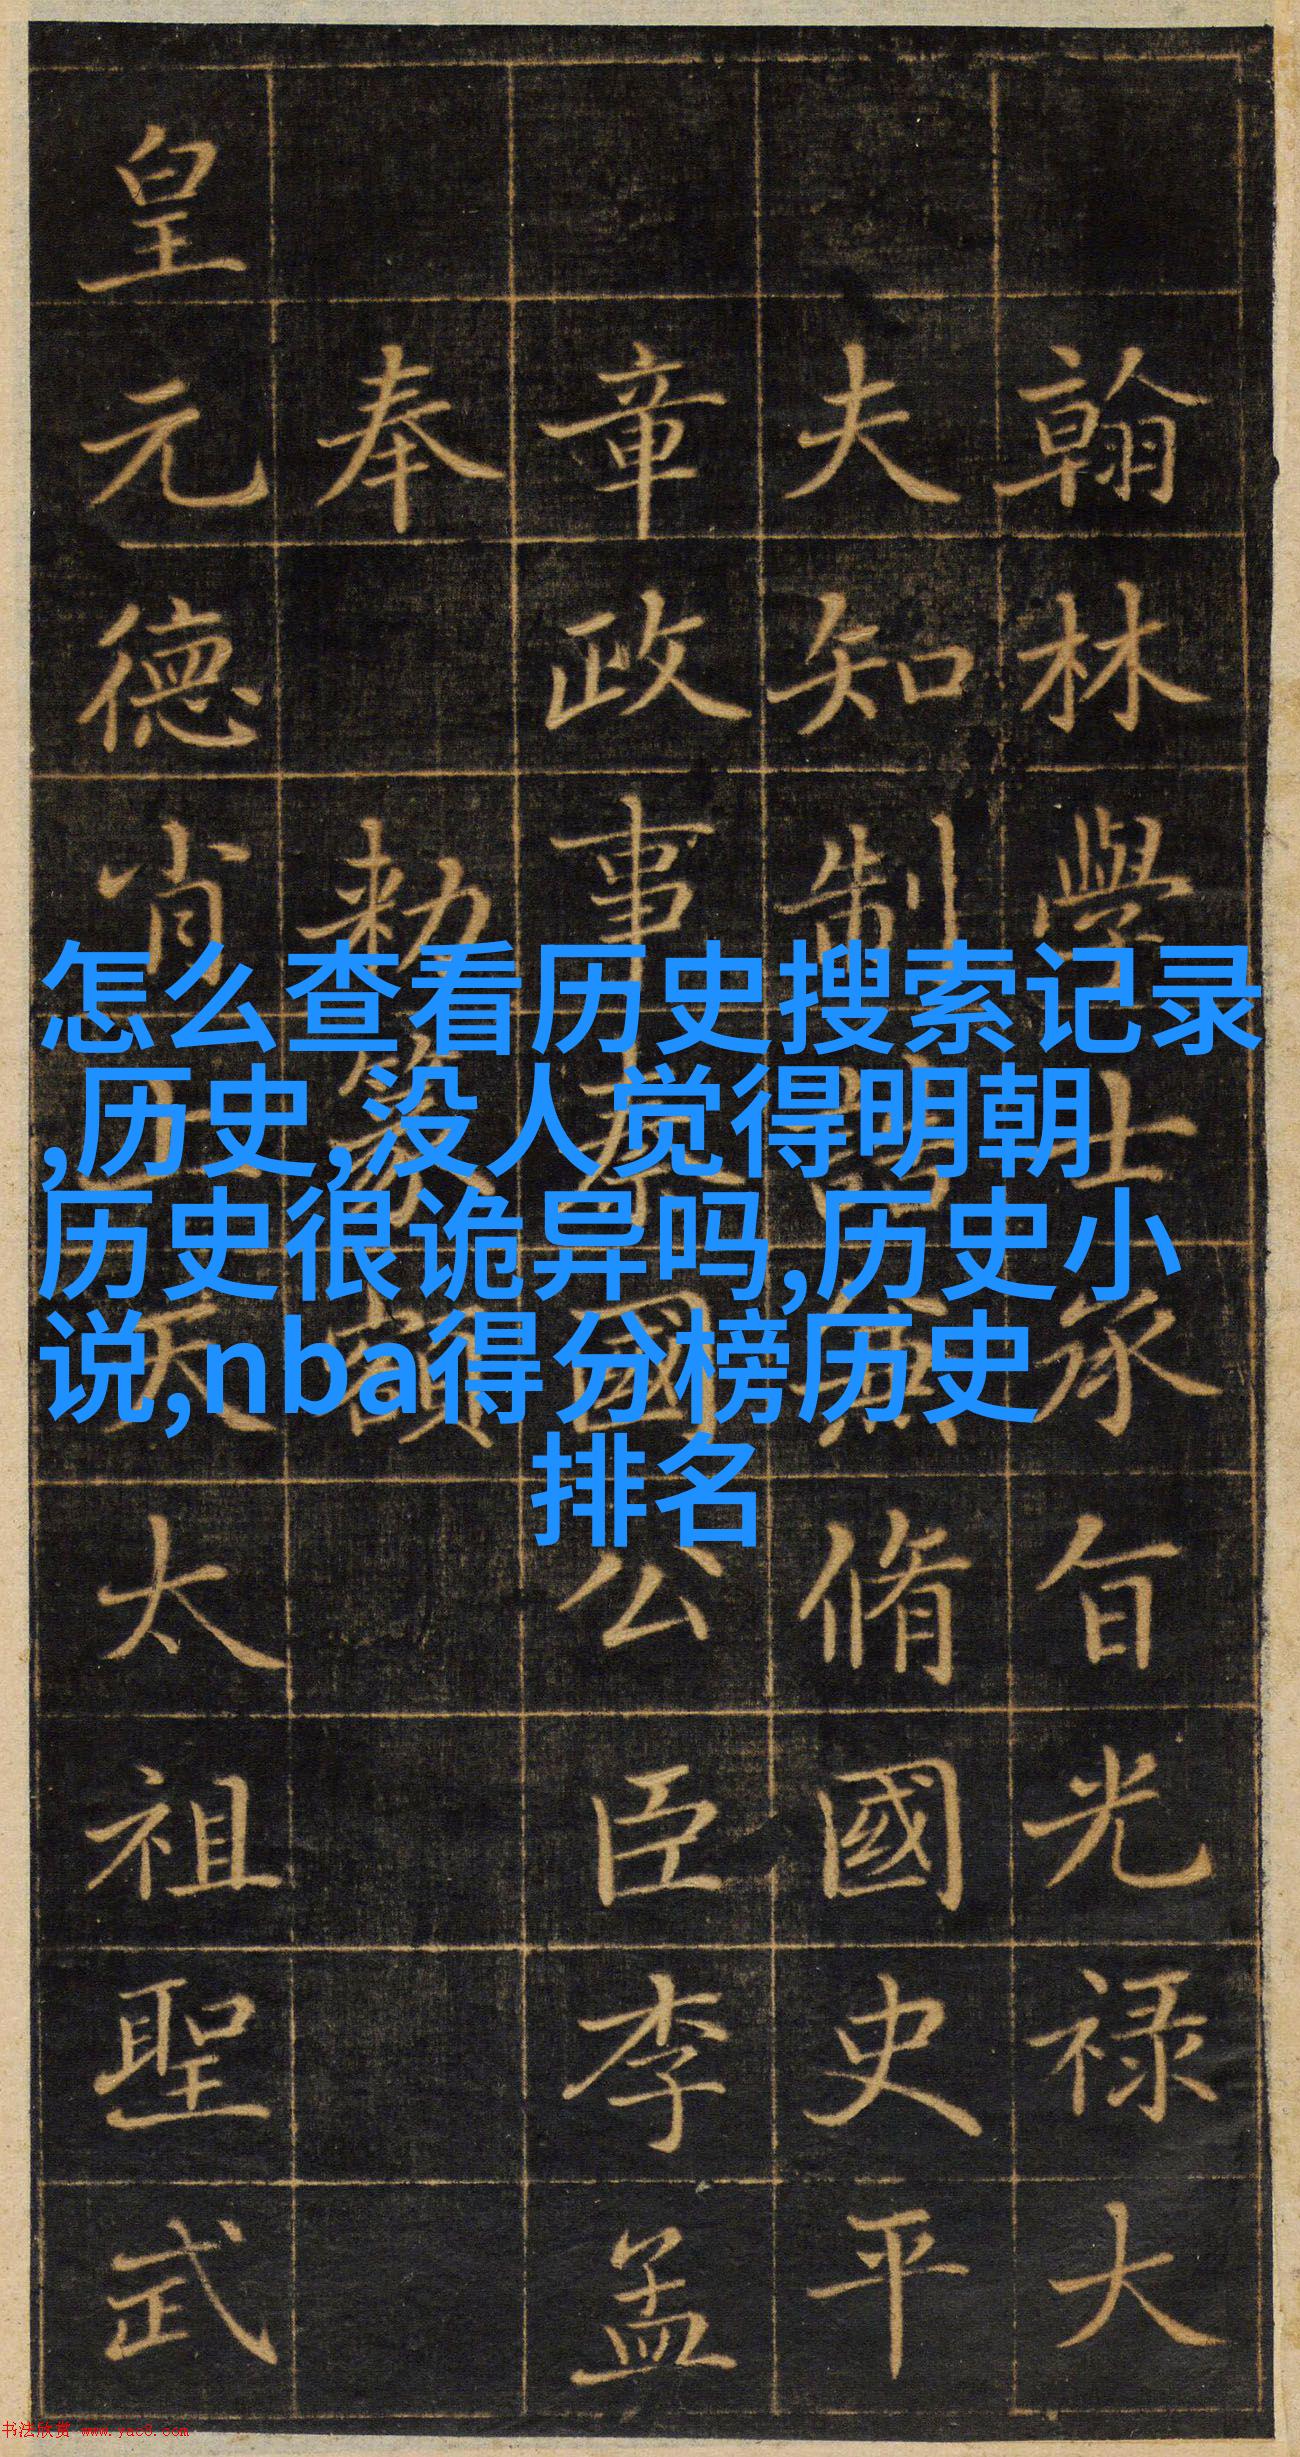 翰林學士承旨光禄大
夫知制誥兼脩國史平
章政事秦國公臣李孟
奉 勑篆額
皇元德肖上天太祖聖武
怎么查看历史搜索记录
,历史,没人觉得明朝
历史很诡异吗,历史小
说,nba得分榜历史
排名
书法欣赏 www.yac8.com